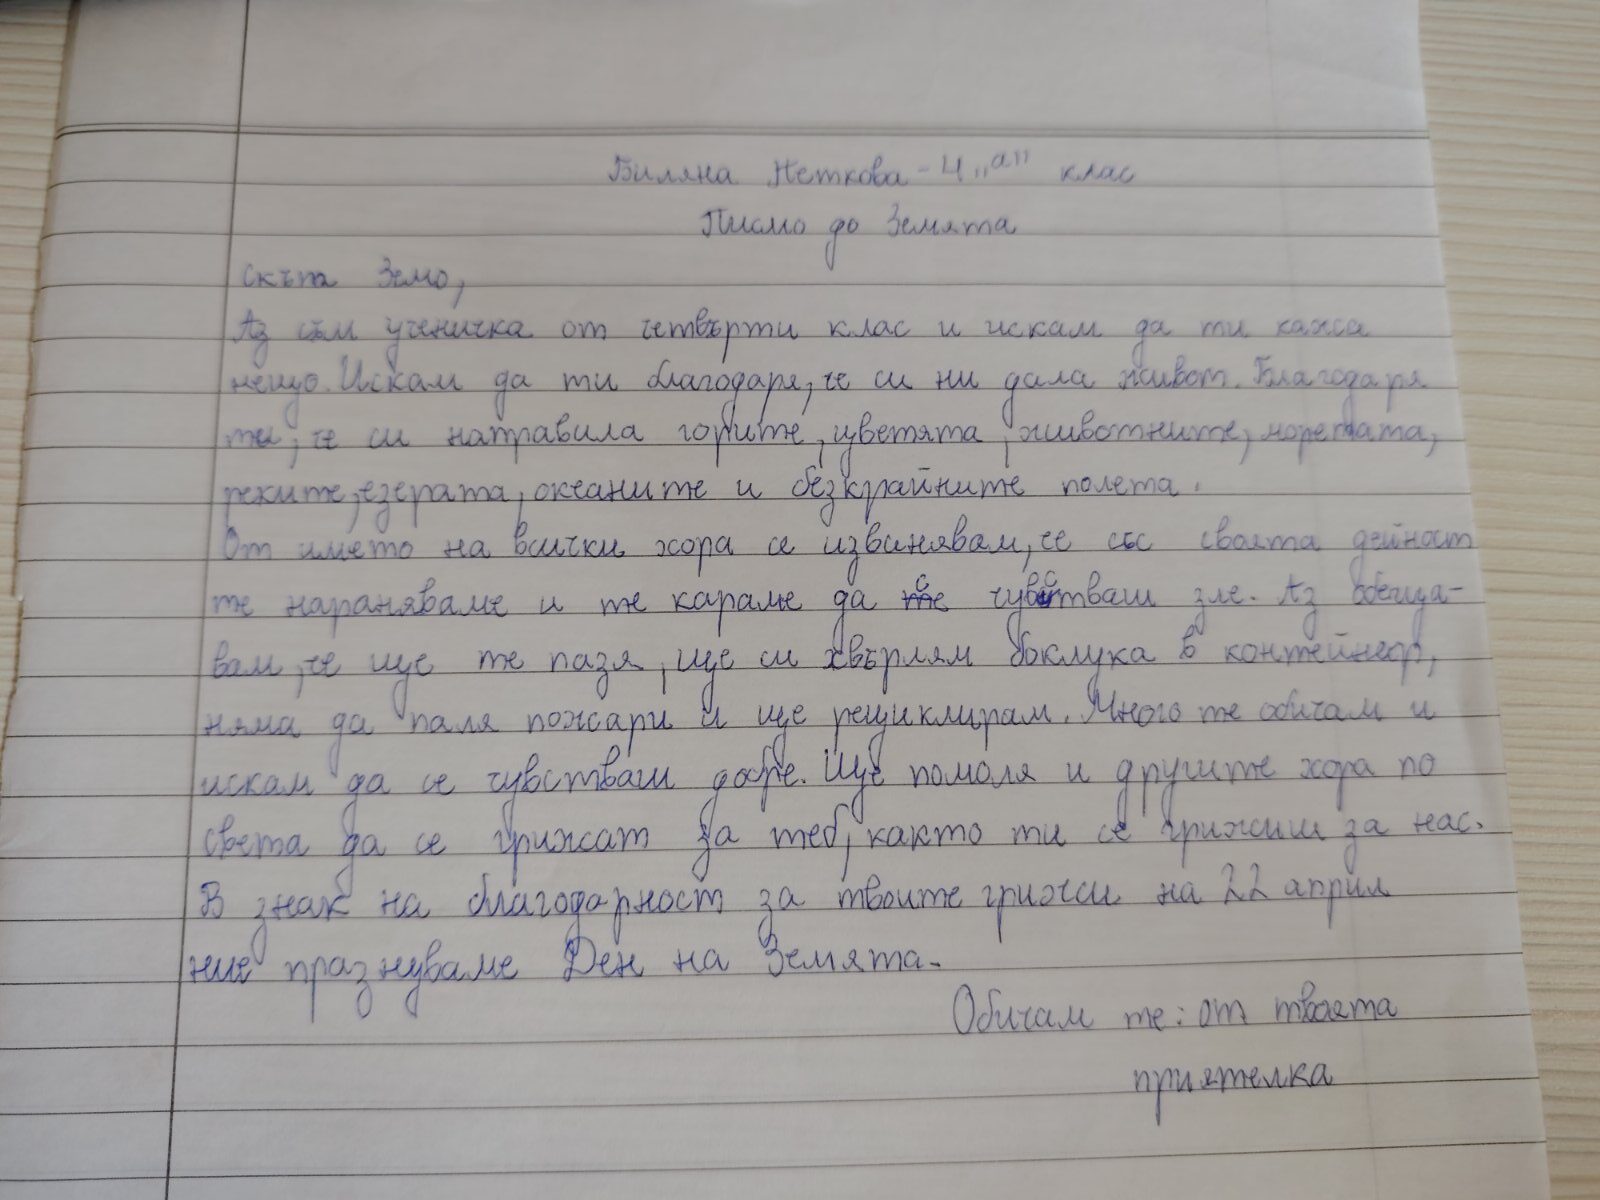 Биляна Неткова - 4 "а" клас
Писмо до Земята
Скъпа Земо,
Аз съм ученичка от четвърти клас и искам да ти кажа
нещо. Искам да ти благодаря, че си ни дала живот. Благодаря
ти, че си направила горите, цветята, животните, моретата,
реките, езерата, океаните и безкрайните полета.
От името на всички хора се извинявам, че със своята дейност
те нараняваме и те караме да се чувстваш зле. Аз обеща-
вам, че ще те пазя, ще си хвърлям боклука в контейнер,
няма да паля пожари и ще рециклирам. Много те обичам и
искам да се чувстваш добре. Ще помоля и другите хора по
света да се грижат за теб, както ти се грижиш за нас.
В знак на благодарност за твоите грижи на 22 април
ние празнуваме Ден на Земята.
Обичам те: от твоята
приятелка